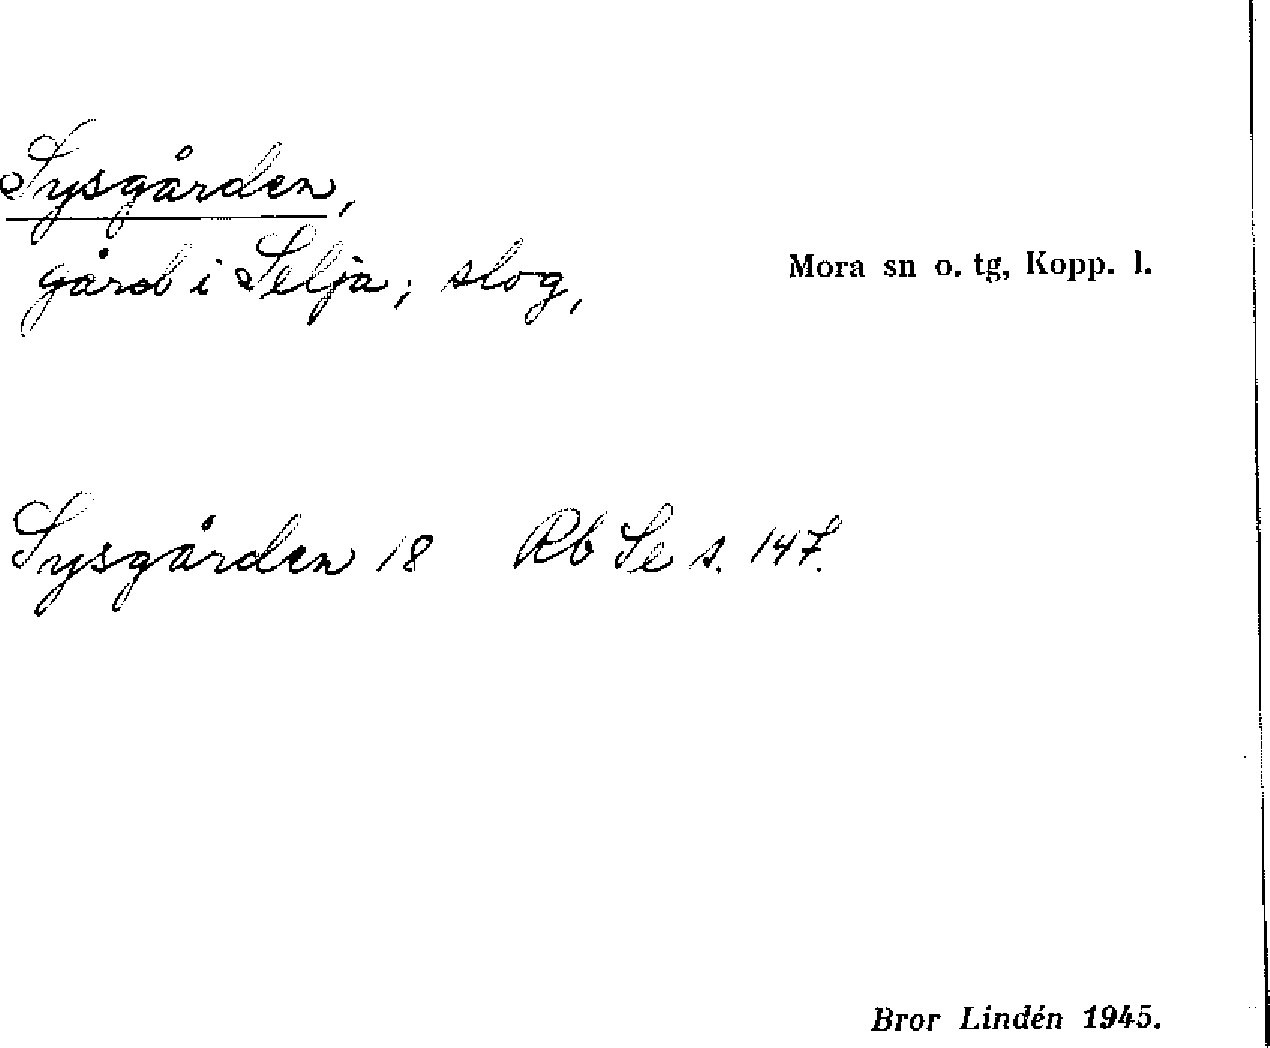 Sysgården,
gård i Selja; slog,
Mora sn o. tg, Kopp. l.
Sysgården 18 Rb Se s. 147.
Bror Lindén 1945.